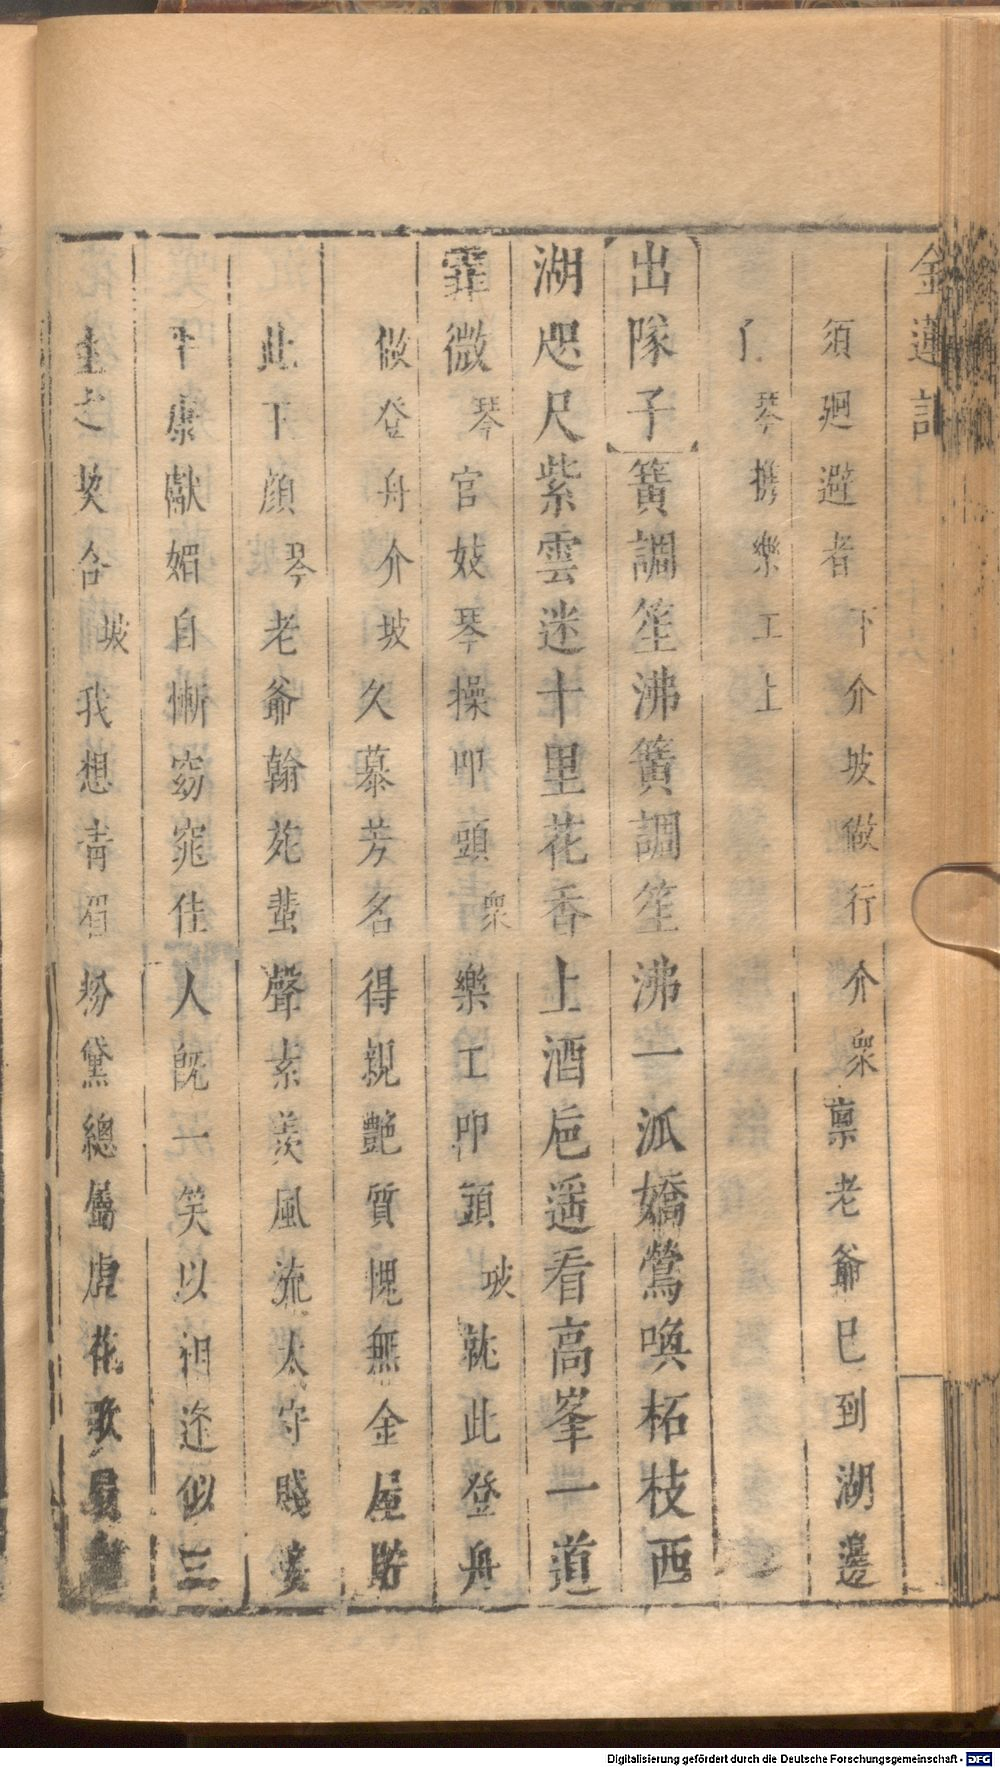 金蓮記
須廻避者下介坡做行介衆禀老爺巳到湖邊
了琴携樂工上
出隊子簧調笙沸簧調笙沸一派嬌鶯喚柘枝西
湖咫尺紫雲迷十里花香上酒巵遥看高峯一道
霏微琴官妓琴操叩頭衆樂工叩頭坡就此登舟
做登舟介坡久慕芳名得親艷質愧無金屋貯
此下顔琴老爺翰苑蜚聲素羨風流太守賤妾
平康獻媚自慚窈窕佳人旣一笑以祖逰似三
生之契合坡我想青眉粉黛總屬虚花歌扇
Digitalisierung gefördert durch die Deutsche Forschungsgemeinschaft - DFG